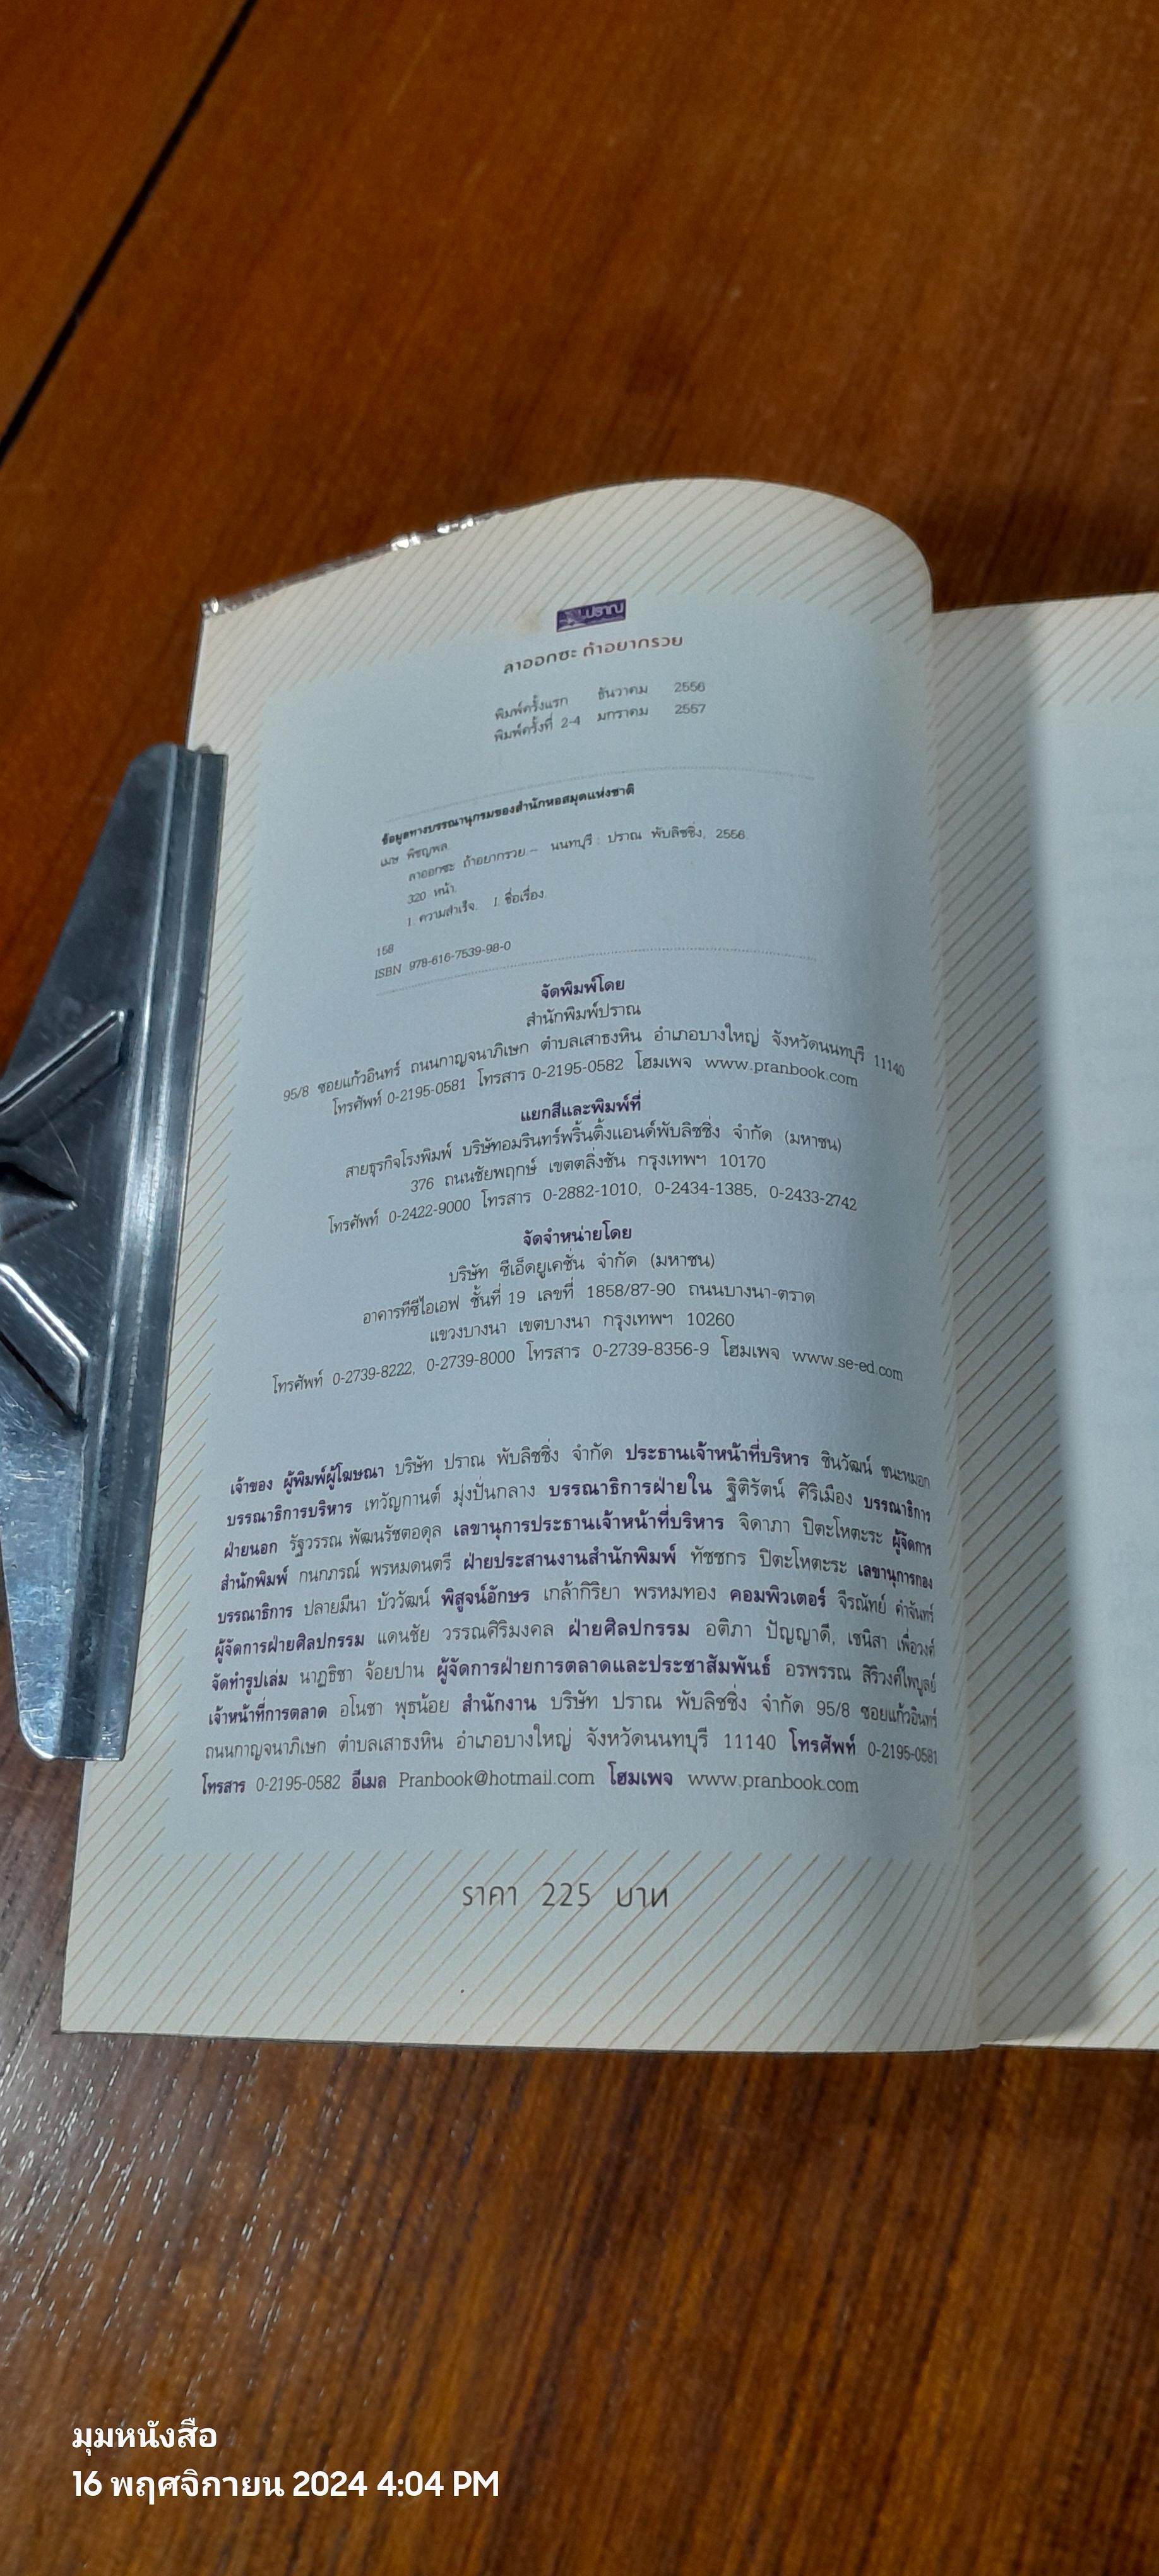 ปราณ
ลาออกซะ ถ้าอยากรวย
พิมพ์ครั้งแรก ธันวาคม 2556
พิมพ์ครั้งที่ 2-4 มกราคม 2557
ข้อมูลทางบรรณานุกรมของสำนักหอสมุดแห่งชาติ
เมษ พิชญพล.
ลาออกซะ ถ้าอยากรวย.-- นนทบุรี : ปราณ พับลิชชิ่ง, 2556.
320 หน้า.
1. ความสำเร็จ. I. ชื่อเรื่อง.
158
ISBN 978-616-7539-98-0
จัดพิมพ์โดย
สำนักพิมพ์ปราณ
95/8 ซอยแก้วอินทร์ ถนนกาญจนาภิเษก ตำบลเสาธงหิน อำเภอบางใหญ่ จังหวัดนนทบุรี 11140
โทรศัพท์ 0-2195-0581 โทรสาร 0-2195-0582 โฮมเพจ www.pranbook.com
แยกสีและพิมพ์ที่
สายธุรกิจโรงพิมพ์ บริษัทอมรินทร์พริ้นติ้งแอนด์พับลิชชิ่ง จำกัด (มหาชน)
376 ถนนชัยพฤกษ์ เขตตลิ่งชัน กรุงเทพฯ 10170
โทรศัพท์ 0-2422-9000 โทรสาร 0-2882-1010, 0-2434-1385, 0-2433-2742
จัดจำหน่ายโดย
บริษัท ซีเอ็ดยูเคชั่น จำกัด (มหาชน)
อาคารทีซีไอเอฟ ชั้นที่ 19 เลขที่ 1858/87-90 ถนนบางนา-ตราด
แขวงบางนา เขตบางนา กรุงเทพฯ 10260
โทรศัพท์ 0-2739-8222, 0-2739-8000 โทรสาร 0-2739-8356-9 โฮมเพจ www.se-ed.com
เจ้าของ ผู้พิมพ์ผู้โฆษณา บริษัท ปราณ พับลิชชิ่ง จำกัด ประธานเจ้าหน้าที่บริหาร ชินวัฒน์ ชนะหมอก
บรรณาธิการบริหาร เทวัญกานต์ มุ่งปั่นกลาง บรรณาธิการฝ่ายใน ฐิติรัตน์ ศิริเมือง บรรณาธิการ
ฝ่ายนอก รัฐวรรณ พัฒนรัชตอดุล เลขานุการประธานเจ้าหน้าที่บริหาร จิดาภา ปิตะโหตะระ ผู้จัดการ
สำนักพิมพ์ กนกภรณ์ พรหมดนตรี ฝ่ายประสานงานสำนักพิมพ์ ทัชชกร ปิตะโหตะระ เลขานุการกอง
บรรณาธิการ ปลายมีนา บัววัฒน์ พิสูจน์อักษร เกล้ากิริยา พรหมทอง คอมพิวเตอร์ จีรณัทย์ คำจันทร์
ผู้จัดการฝ่ายศิลปกรรม แดนชัย วรรณศิริมงคล ฝ่ายศิลปกรรม อติภา ปัญญาดี, เชนิสา เพื่อวงศ์
จัดทำรูปเล่ม นาฏธิชา จ้อยปาน ผู้จัดการฝ่ายการตลาดและประชาสัมพันธ์ อรพรรณ สิริวงศ์ไพบูลย์
เจ้าหน้าที่การตลาด อโนชา พุธน้อย สำนักงาน บริษัท ปราณ พับลิชชิ่ง จำกัด 95/8 ซอยแก้วอินทร์
ถนนกาญจนาภิเษก ตำบลเสาธงหิน อำเภอบางใหญ่ จังหวัดนนทบุรี 11140 โทรศัพท์ 0-2195-0581
โทรสาร 0-2195-0582 อีเมล Pranbook@hotmail.com โฮมเพจ www.pranbook.com
ราคา 225 บาท
มุมหนังสือ
16 พฤศจิกายน 2024 4:04 PM